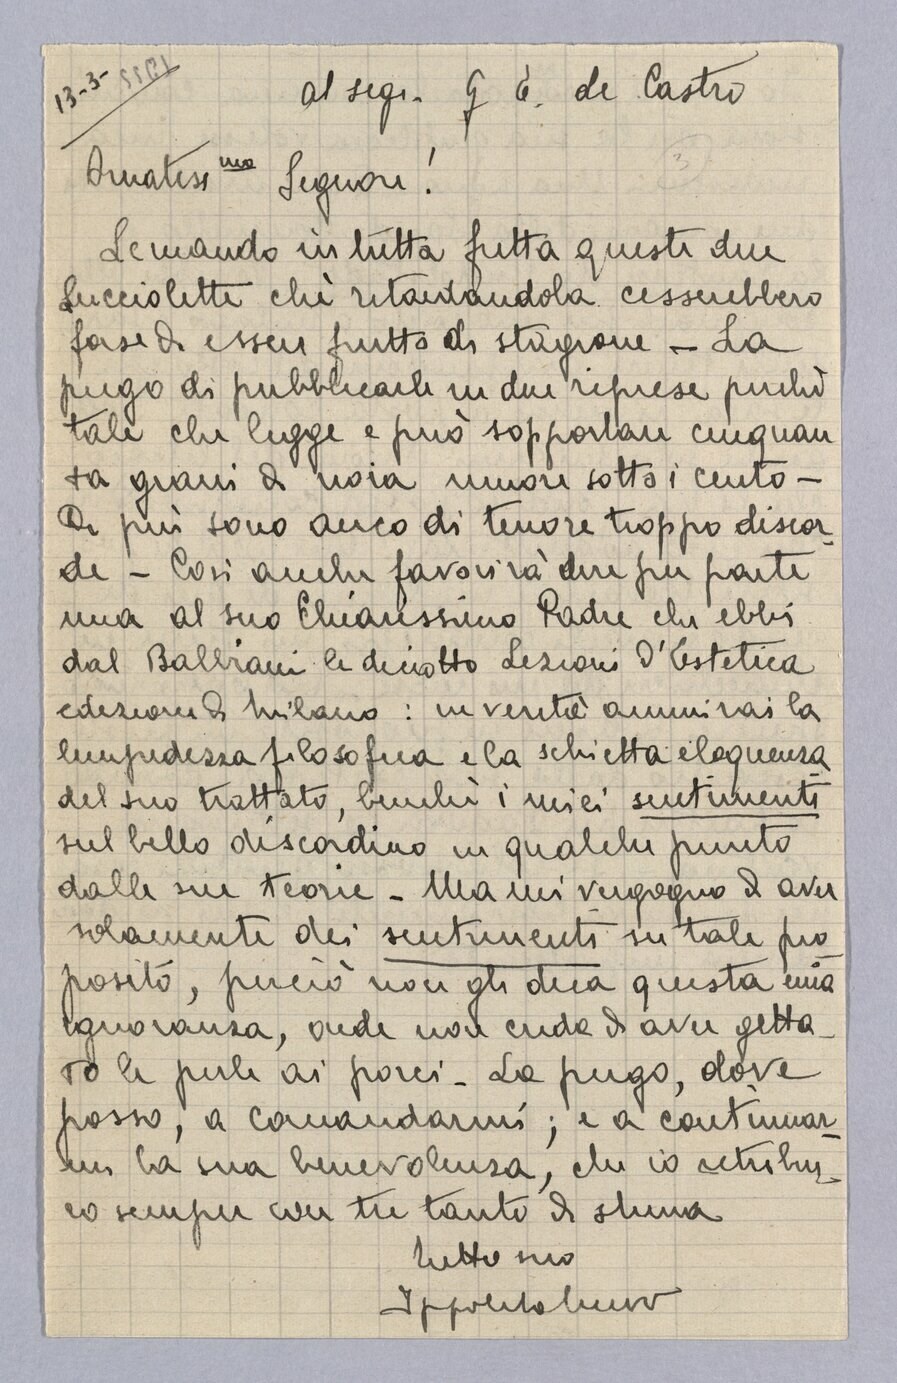 13-3-
al segr. G E. de Castro
3
Ornatiss mo Signore!
Le mando in tutta fretta queste due
Lucciolette chè ritardandola cesserebbero
forse di essere frutto di stagione - La
prego di pubblicarle in due riprese perchè
tale che legge e può sopportare cinquan
ta grani di noia muore sotto i cento -
Di più sono anco di tenore troppo discor-
de - Così anche favorirà dire per parte
mia al suo Chiarissimo Padre che ebbi
dal Balbiani le diciotto Lezioni d'Estetica
edizione di Milano: in verità ammirai la
limpidezza filosofica e la schietta eloquenza
del suo trattato, benchè i miei sentimenti
sul bello discordino in qualche punto
dalle sue teorie - Ma mi vergogno di aver
solamente dei sentimenti su tale pro
posito, perciò non gli dica questa mia
ignoranza, onde non creda di aver getta-
to le perle ai porci - La prego, dove
posso, a comandarmi; e a continuar-
mi la sua benevolenza, che io retribui-
co sempre con tre tanto di stima
tutto suo
Ippolito Nievo